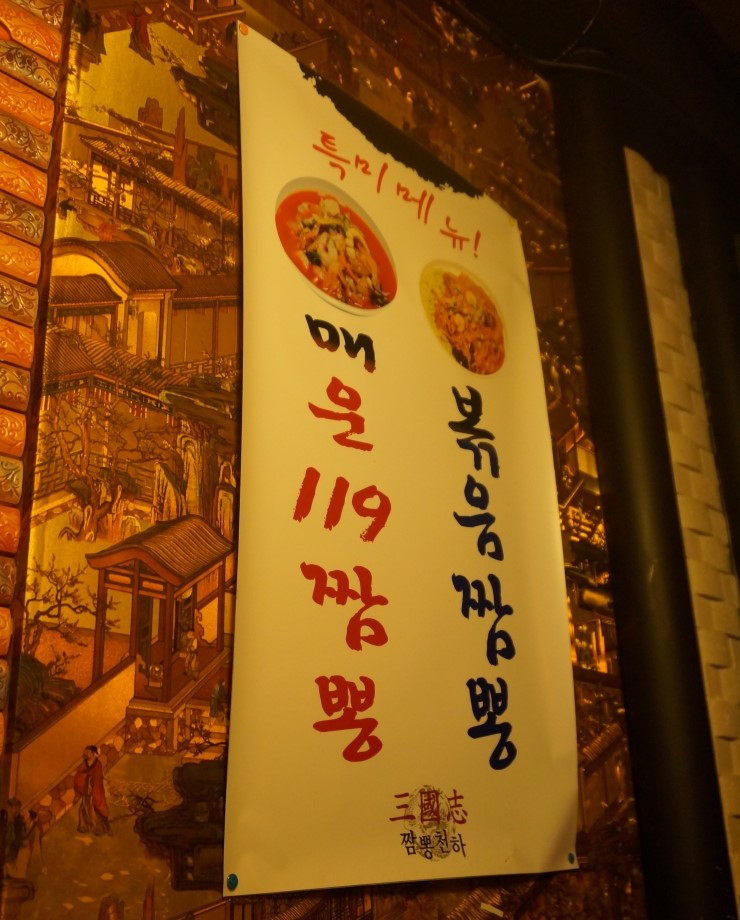 특미 메뉴!
매운119짬뽕
볶음짬뽕
三國志
짬뽕천하